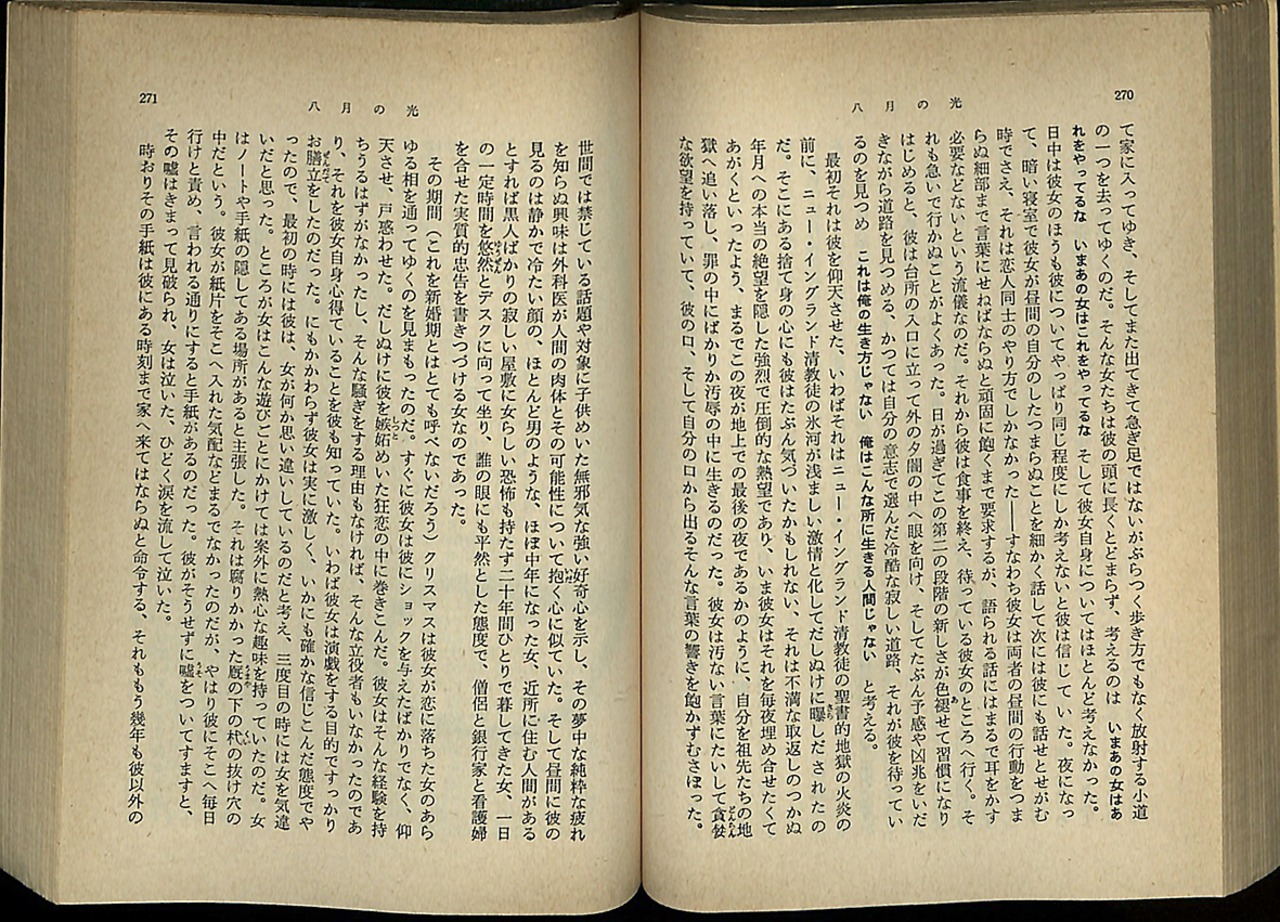 270
八月の光
て家に入ってゆき、そしてまた出てきて急ぎ足ではないがぶらつく歩き方でもなく放射する小道
の一つを去ってゆくのだ。そんな女たちは彼の頭に長くとどまらず、考えるのは　いまあの女はあ
れをやってるな　いまあの女はこれをやってるな　そして彼女自身についてはほとんど考えなかった。
日中は彼女のほうも彼についてやっぱり同じ程度にしか考えないと彼は信じていった。夜になっ
て、暗い寝室で彼女が昼間の自分のしたつまらぬことを細かく話して次には彼にも話せとせがむ
時でさえ、それは恋人同士のやり方でしかなかった――すなわち彼女は両者の昼間の行動をつま
らぬ細部まで言葉にせねばならぬと頑固に飽くまで要求するが、語られる話にはまるで耳をかす
必要などないという流儀なのだ。それから彼は食事を終え、待っている彼女のところへ行く。そ
れも急いで行かぬことがよくあった。日が過ぎてこの第二の段階の新しさが色褪せて習慣になり
はじめると、彼は台所の入口に立って外の夕闇の中へ眼を向け、そしてたぶん予感や凶兆をいだ
きながら道路を見つめる、かつては自分の意志で選んだ冷酷な寂しい道路、それが彼を待ってい
るのを見つめ　これは俺の生き方じゃない　俺はこんな所に生きる人間じゃない　と考える。
最初それは彼を仰天させた、いわばそれはニュー・イングランド清教徒の聖書的地獄の火炎の
前に、ニュー・イングランド清教徒の氷河が浅ましい激情と化してだしぬけに曝しだされたの
だ。そこにある捨て身の心にも彼はたぶん気づいたかもしれない、それは不満な取返しのつかぬ
年月への本当の絶望を隠した強烈で圧倒的な熱望であり、いま彼女はそれを毎夜埋め合せたくて
あがくといったよう、まるでこの夜が地上での最後の夜であるかのように、自分を祖先たちの地
獄へ追い落し、罪の中にばかりか汚辱の中に生きるのだった。彼女は汚ない言葉にたいして貪婪
な欲望を持っていて、彼の口、そして自分の口から出るそんな言葉の響きを飽かずむさぼった。
271
八月の光
世間では禁じている話題や対象に子供めいた無邪気な強い好奇心を示し、その夢中な純粋な疲れ
を知らぬ興味は外科医が人間の肉体とその可能性について抱く心に似ていた。そして昼間に彼の
見るのは静かで冷たい顔の、ほとんど男のような、ほぼ中年になった女、近所に住む人間がある
とすれば黒人ばかりの寂しい屋敷に女らしい恐怖も持たず二十年間ひとりで暮してきた女、一日
の一定時間を悠然とデスクに向って坐り、誰の眼にも平然とした態度で、僧侶と銀行家と看護婦
を合せた実質的忠告を書きつづける女なのであった。
その期間（これを新婚期とはとても呼べないだろう）クリスマスは彼女が恋に落ちた女のあら
ゆる相を通ってゆくのを見まもったのだ。すぐに彼女は彼にショックを与えたばかりでなく、仰
天させ、戸惑わせた。だしぬけに彼を嫉妬めいた狂恋の中に巻きこんだ。彼女はそんな経験を持
ちうるはずがなかったし、そんな騒ぎをする理由もなければ、そんな立役者もいなかったのであ
り、それを彼女自身心得ていることを彼も知っていた。いわば彼女は演戯をする目的ですっかり
お膳立をしたのだった。にもかかわらず彼女は実に激しく、いかにも確かな信じこんだ態度でや
ったので、最初の時には彼は、女が何か思い違いしているのだと考え、三度目の時には女を気違
いだと思った。ところが女はこんな遊びごとにかけては案外に熱心な趣味を持っていたのだ。女
はノートや手紙の隠してある場所があると主張した。それは腐りかかった厩の下の杙の抜け穴の
中だという。彼女が紙片をそこへ入れた気配などまるでなかったのだが、やはり彼にそこへ毎日
行けと責め、言われる通りにすると手紙があるのだった。彼がそうせずに嘘をついてすますと、
その嘘はきまって見破られ、女は泣いた、ひどく涙を流して泣いた。
時おりその手紙は彼にある時刻まで家へ来てはならぬと命令する、それももう幾年も彼以外の